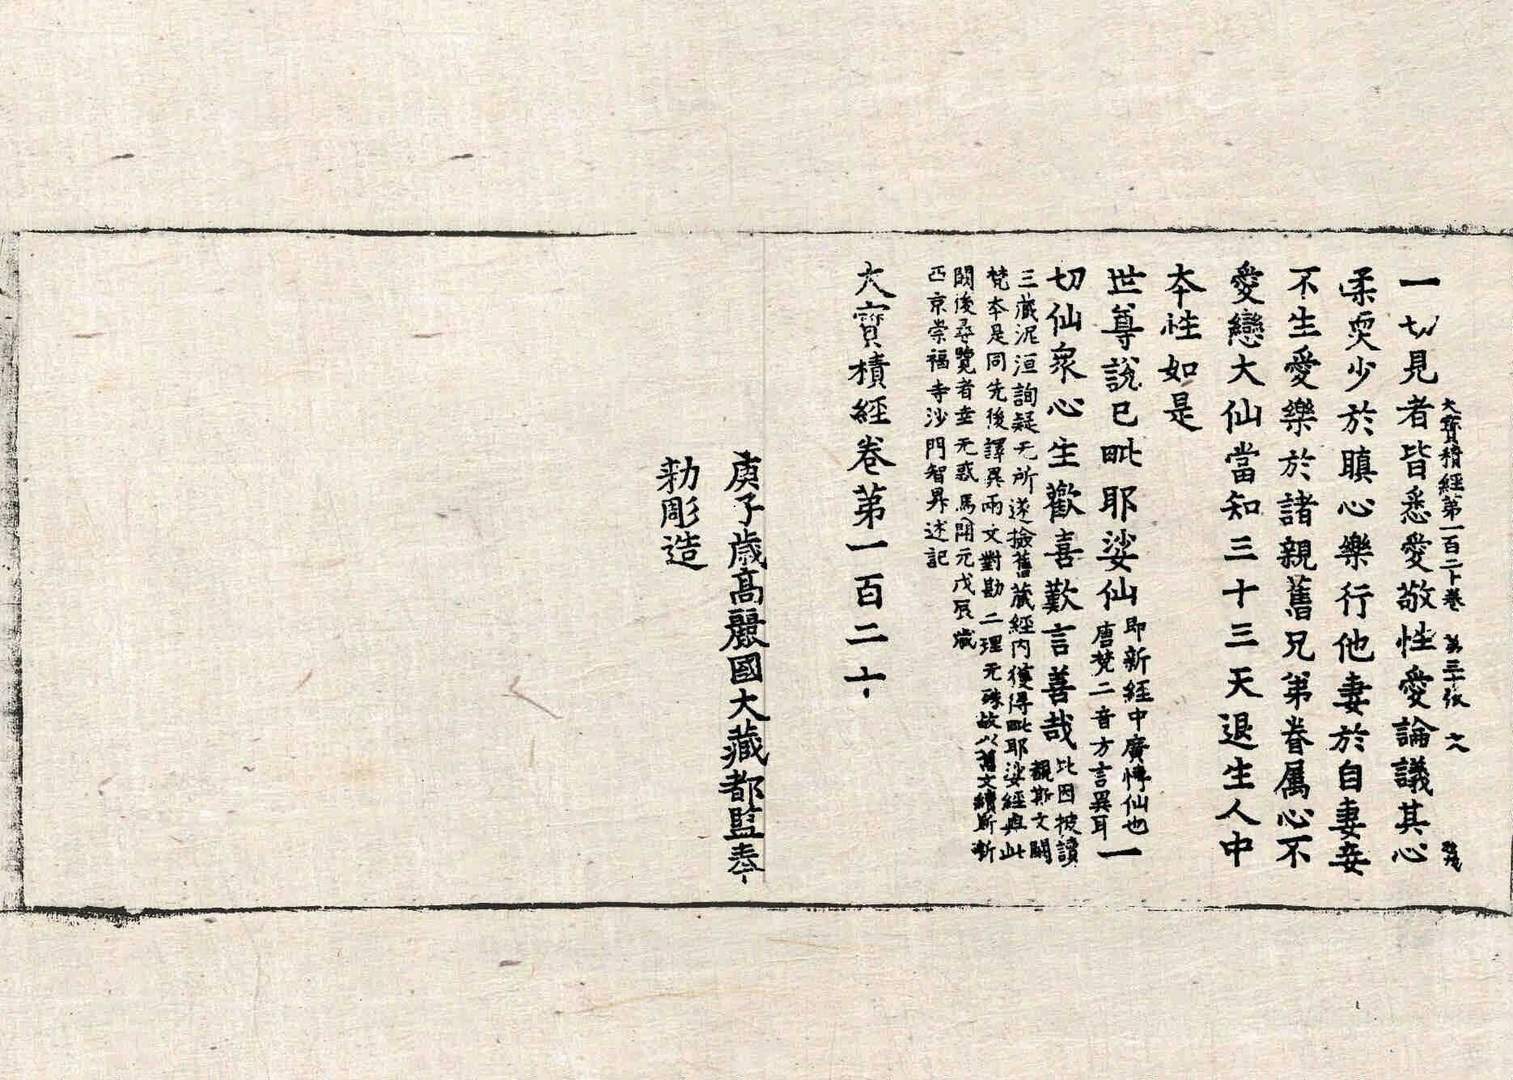 大寶積經第一百二十卷　第三十張　文
一切見者皆悉愛敬性愛論議其心
柔耎少於瞋心樂行他妻於自妻妾
不生愛樂於諸親舊兄弟眷属心不
愛戀大仙當知三十三天退生人中
夲性如是
世尊說已毗耶娑仙
即新經中廣博仙也
唐梵二音方言異耳
一
切仙衆心生歡喜歎言善哉
比因披讀
親斯文闕
三藏泥洹詢疑无所遂撿舊藏經内獲得毗耶娑經與此
梵夲是同先後譯異兩文對勘二理无殊故以舊文續斯新
闕後尋覽者幸无惑焉開元戊辰歲
西京崇福寺沙門智昇述記
大寶積經卷第一百二十
庚子歳高麗國大藏都監奉
勑彫造